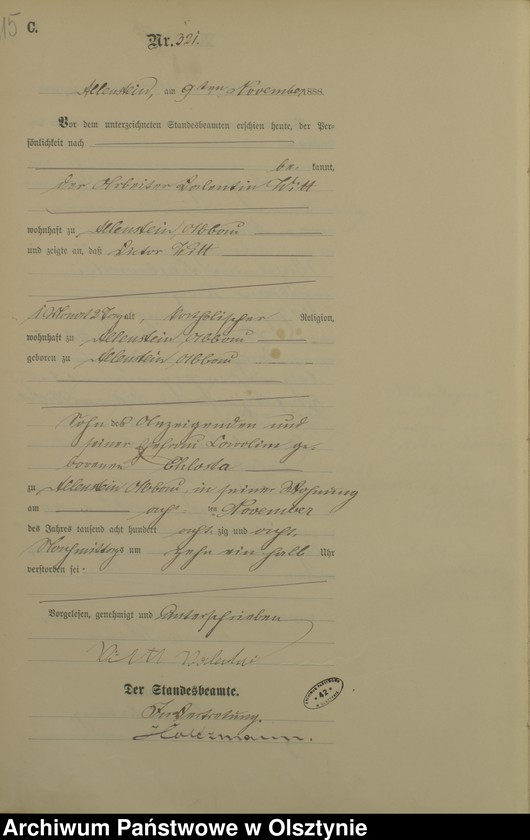 15 C.
Nr. 321.
Allenstein, am 9ten November 1888.
Vor dem unterzeichneten Standesbeamten erschien heute, der Per-
sönlichkeit nach
be kannt,
der Arbeiter Valentin Witt
wohnhaft zu Allenstein Abbau
und zeigte an, daß Victor Witt
1 Monat 2 Tage alt, katholischer Religion,
wohnhaft zu Allenstein Abbau
geboren zu Allenstein Abbau
Sohn des Anzeigenden und
seiner Ehefrau Caroline ge-
borenen Chlosta
zu Allenstein Abbau in seiner Wohnung
am acht ten November
des Jahres tausend acht hundert acht zig und acht,
Nachmittags um zehn ein halb Uhr
verstorben sei.
Vorgelesen, genehmigt und unterschrieben
Witt
Der Standesbeamte.
In Vertretung.
Holtzmann.
42
Archiwum Państwowe w Olsztynie